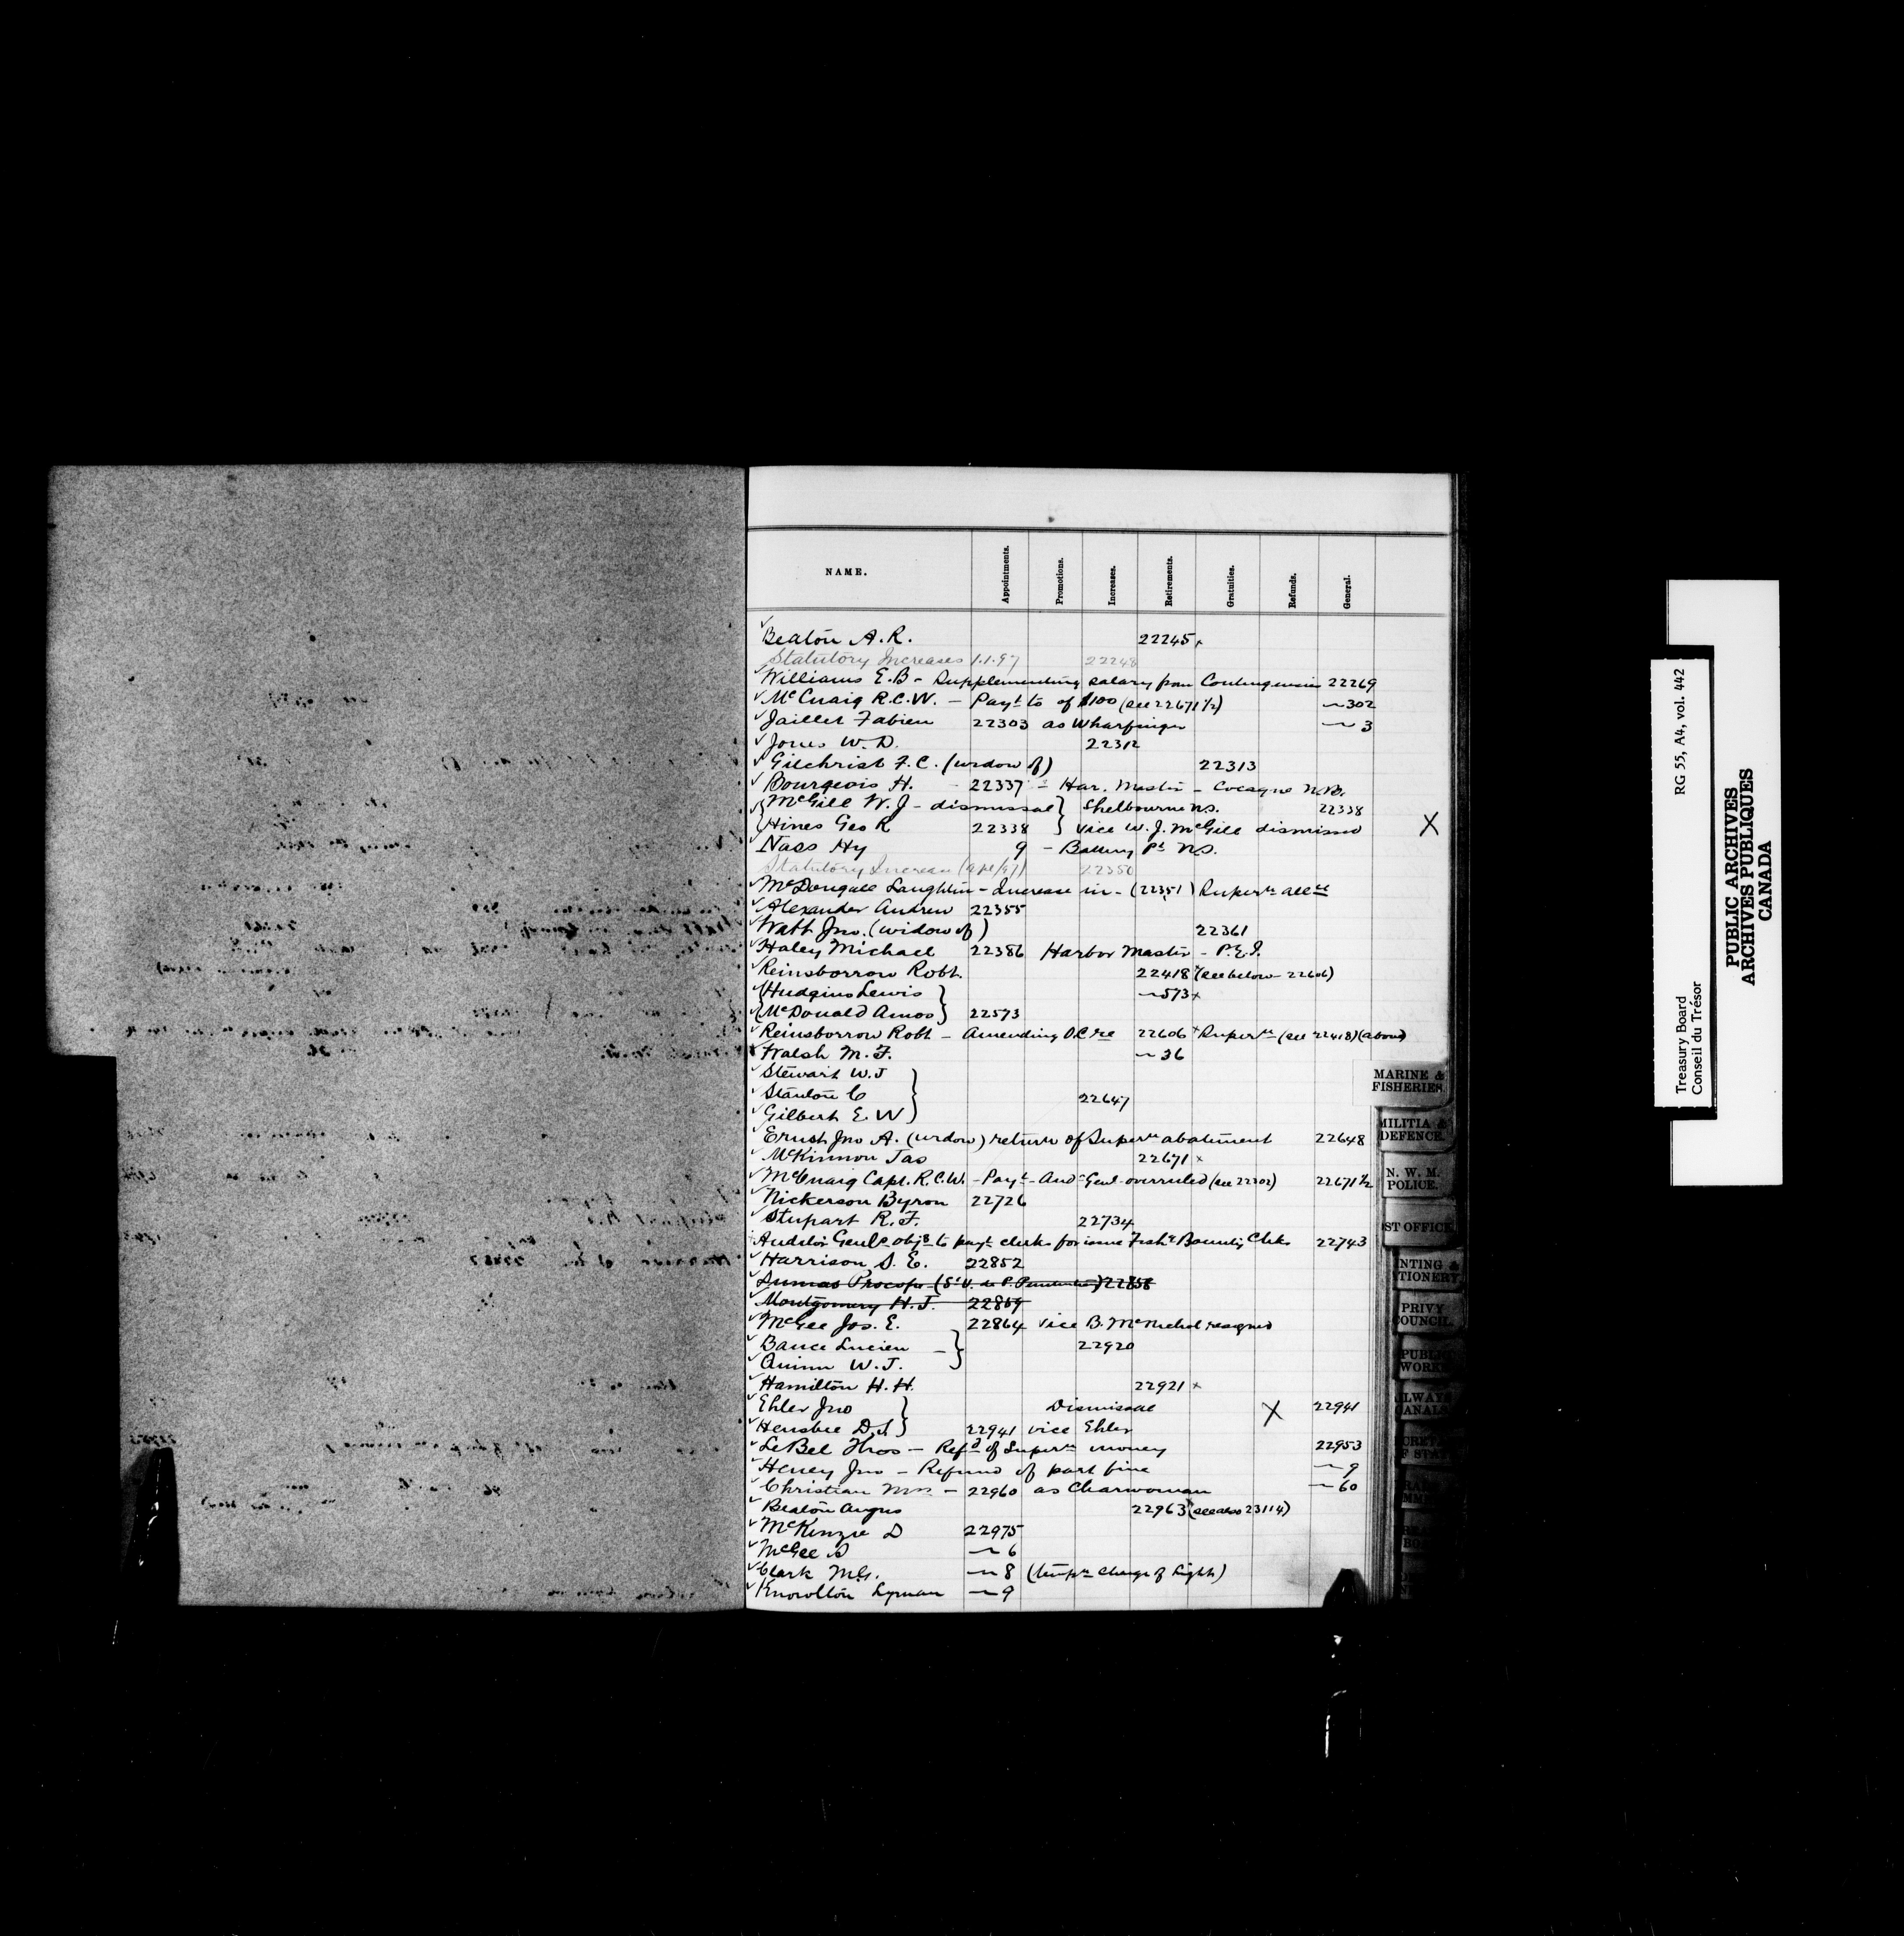 NAME. Appointments. Promotions. Increases. Retirements. Gratuities. Refunds. General.
Beaton A. R. 22245 x
Statutory Increases 1.1.97 22248
Williams E. B - Supplementing salary from Contingencies 22269
McCuaig R. C. W. - Payt to of $100 (see 22671½) 〃302
Jaillet Fabien 22303 as Wharfinger 〃 3
Jones W. D. 22312
Gilchrist F. C. (widow of) 22313
Bourgeois H. 22337 - Har. Master - Cocagne N.B.
{McGill W. J - dismissal} Shelbourne N.S. 22338
{Hines Geo R 22338 } vice W. J. McGill dismissed X
Nass Hy 9 - Battery Pt N.S.
Statutory Increase (apl/97) 22350
McDougall Laughlin - Increase in - (22351) Supern allce
Alexander Andrew 22355
Watt Jno. (widow of) 22361
Haley Michael 22386 Harbor Master - P.E.I.
Reinsborrow Robt. 22418 x (see below - 22606)
{Hudgins Lewis } 〃573 x
{McDonald Amos } 22573
Reinsborrow Robt - Amending O.C. re 22606 x Supern (see 22418) (above)
Walsh M. F. 〃 36
Stewart W. J }
Stanton C } 22647
Gilbert E. W }
Ernst Jno A. (widow) return of Supern abatement 22648
McKinnon Jas 22671 x
McCuaig Capt. R. C. W. - Payt - Aud Genl overruled (see 22302) 22671½
Nickerson Byron 22726
Stupart R. F. 22734
Auditor Genls objs to payt clerks for issue Fishy Bounty Chks 22743
Harrison S. E. 22852
Dumas Procope (St V. de P. Penitentiary) 22858
Montgomery H. J. 22859
McGee Jos. E. 22864 vice B. McNichol resigned
Bance Lucien - } 22920
Quinn W. J. }
Hamilton H. H. 22921 x
Ehler Jno } Dismissal X 22941
Hensbee D. J. } 22941 vice Ehler
LeBel Thos - Refd of Supern money 22953
Heney Jno - Refund of part fine 〃 9
Christian Mrs - 22960 as Charwoman 〃 60
Beaton Angus 22963 x (see also 23114)
McKenzie D 22975
McGee D 〃 6
Clark M. G. 〃 8 (tempy charge of Light)
Knowlton Lyman 〃 9
MARINE & FISHERIES.
MILITIA & DEFENCE.
N. W. M. POLICE.
ST OFFICE
NTING & TIONERY
PRIVY COUNCIL.
PUBLIC WORK
LWAYS ANALS
CRET F STAT
Treasury Board RG 55, A4, vol. 442
Conseil du Trésor
PUBLIC ARCHIVES
ARCHIVES PUBLIQUES
CANADA